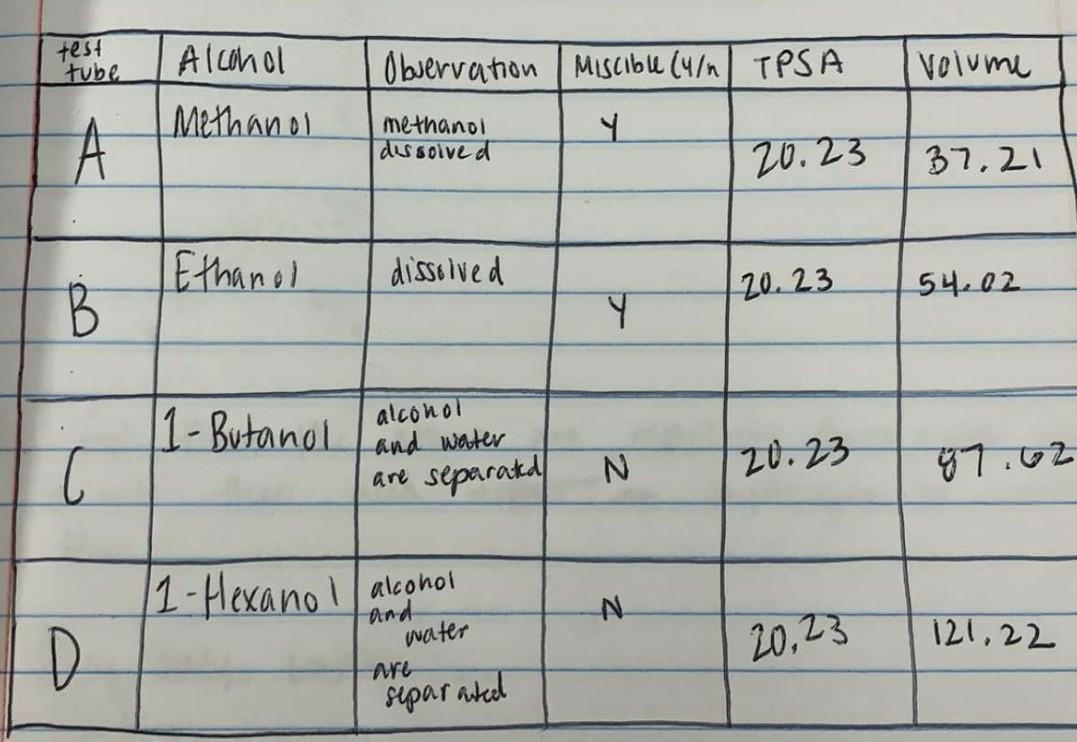 test tube | Alcohol | Observation | Miscible (y/n | TPSA | Volume
A | Methanol | methanol dissolved | Y | 20.23 | 37.21
B | Ethanol | dissolved | Y | 20.23 | 54.02
C | 1-Butanol | alcohol and water are separated | N | 20.23 | 87.62
D | 1-Hexanol | alcohol and water are separated | N | 20.23 | 121.22